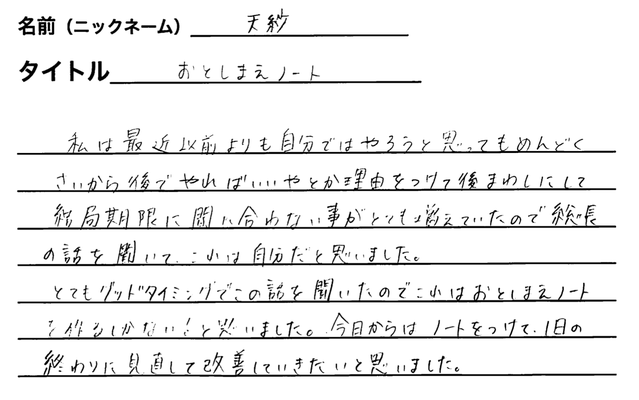 名前（ニックネーム） 天紗
タイトル おとしまえノート
私は最近以前よりも自分ではやろうと思ってもめんどく
さいから後でやればいいやとか理由をつけて後まわしにして
結局期限に間に合わない事がとても増えていたので総長
の話を聞いて、これは自分だと思いました。
とてもグッドタイミングでこの話を聞いたのでこれはおとしまえノート
を作るしかない！と思いました。今日からはノートをつけて、1日の
終わりに見直して改善していきたいと思いました。